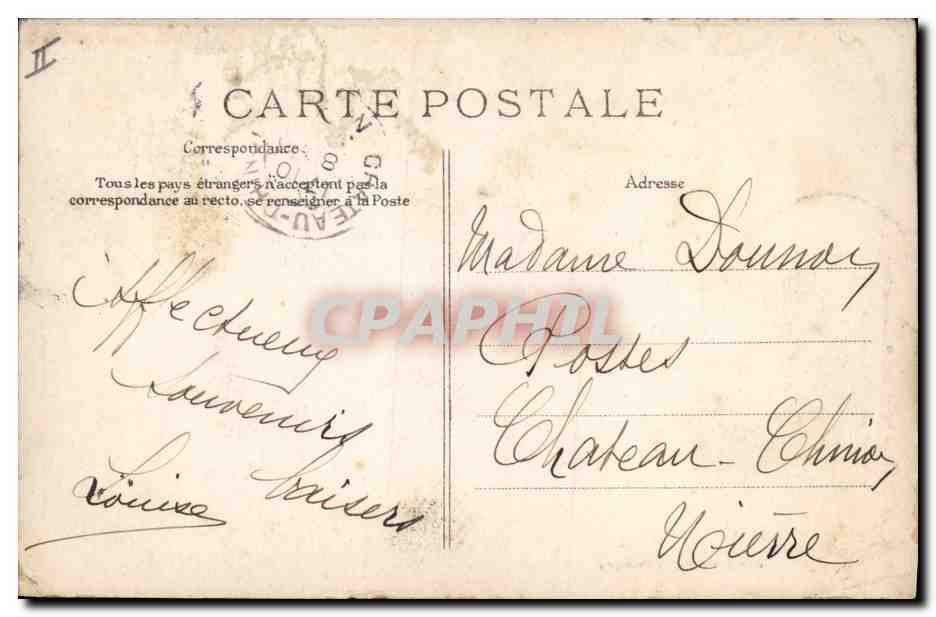 II
CARTE POSTALE
Correspondance.
Tous les pays étrangers n'acceptent pas la
correspondance au recto, se renseigner à la Poste
Affectueux
Souvenirs
baisers
Louise
Adresse
Madame
Postes
Chateau-Chinon
Nièvre
CPAPHIL